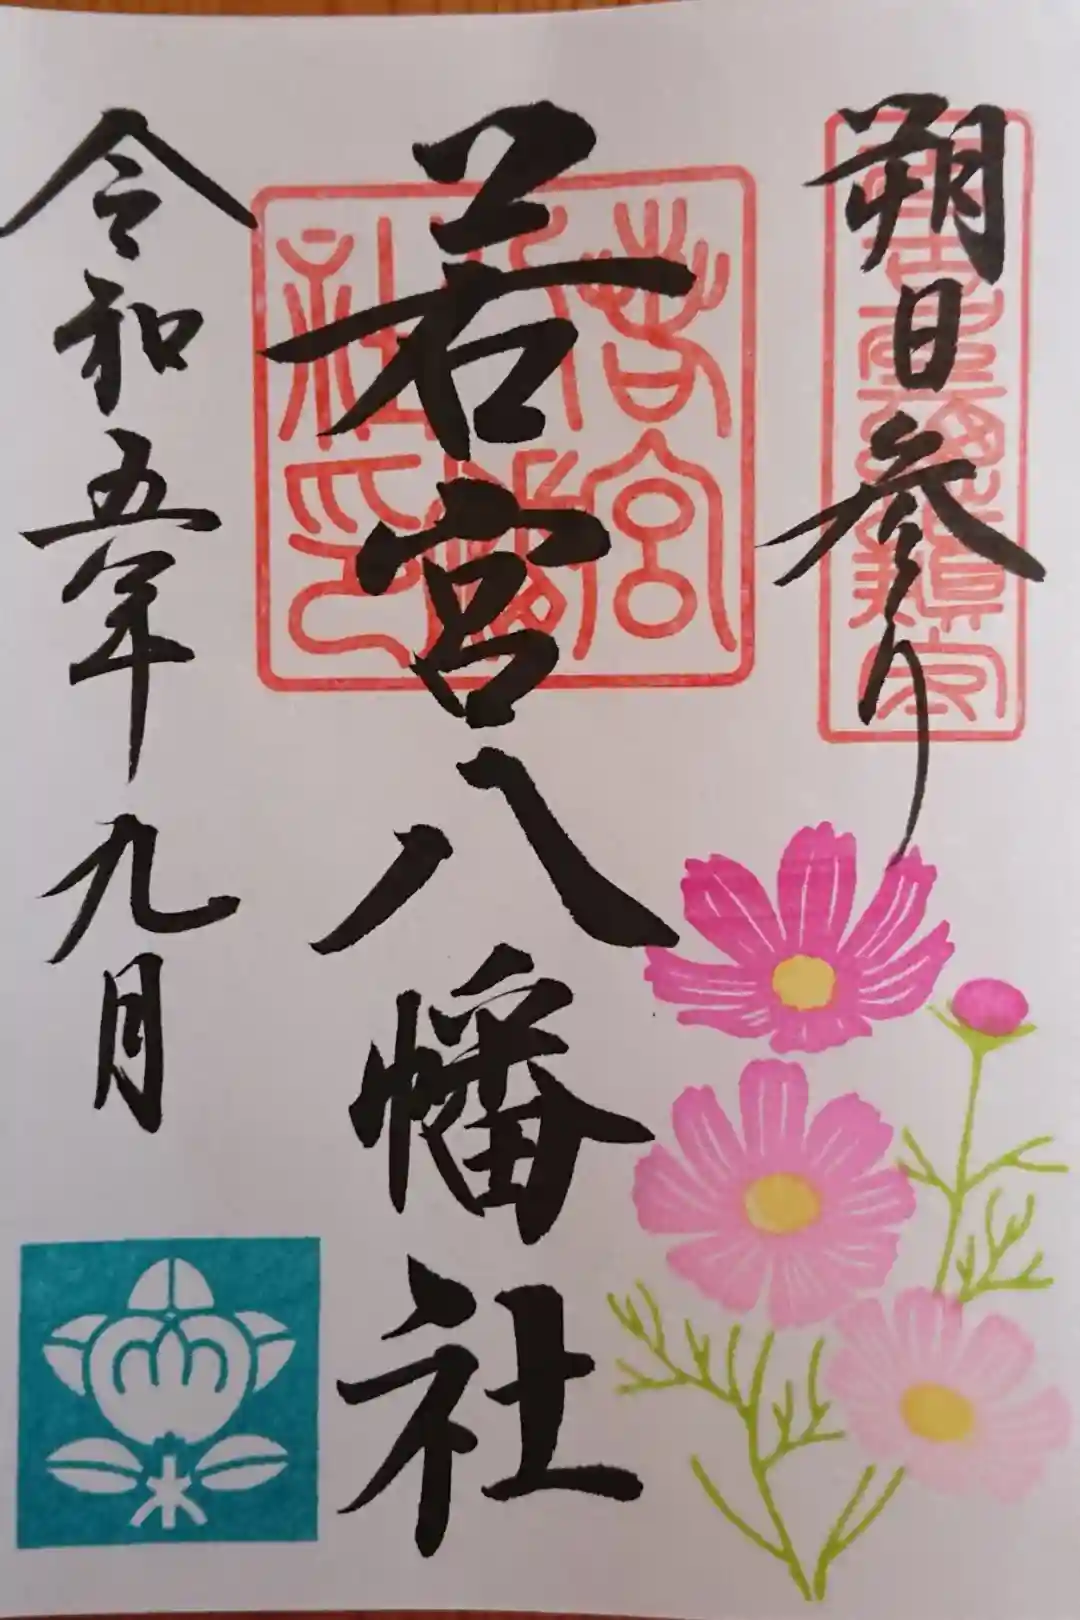 朔日参り
若宮八幡社
令和五年九月
若宮八幡社印